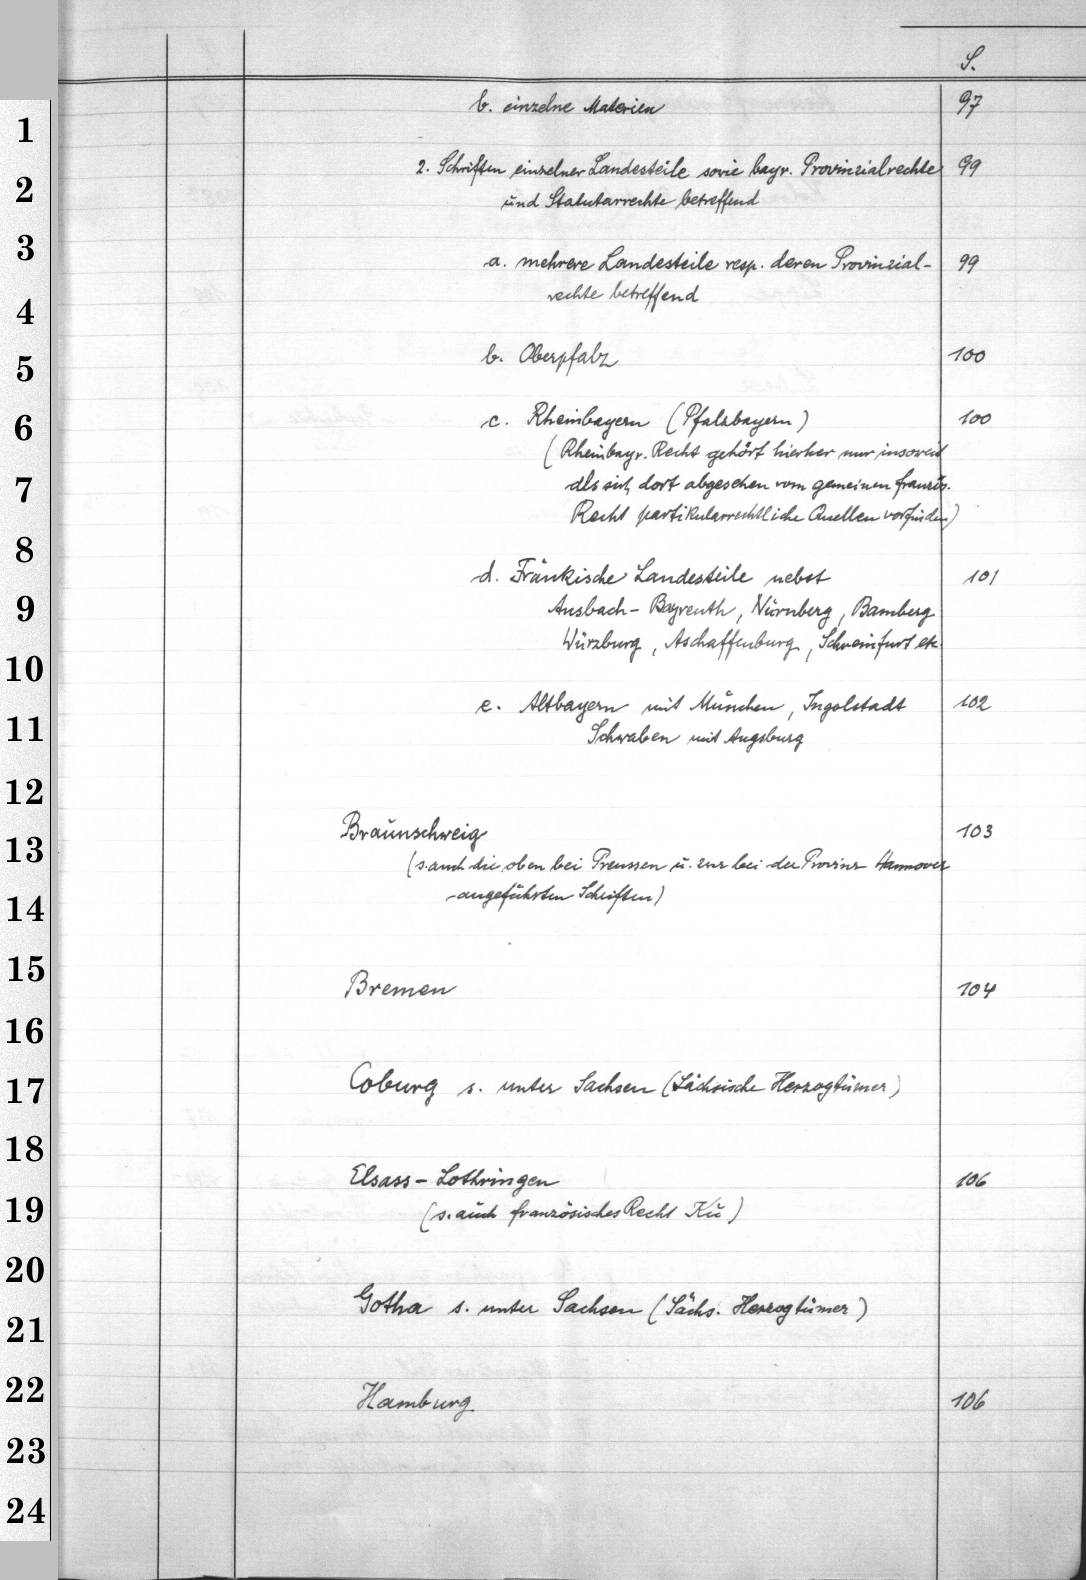 S.
b. einzelne Materien 97
1
2. Schriften einzelner Landesteile sowie bayr. Provinzialrechte 99
2
und Statutarrechte betreffend
3
a. mehrere Landesteile resp. deren Provinzial- 99
rechte betreffend
4
b. Oberpfalz 100
5
c. Rheinbayern (Pfalzbayern) 100
6
(Rheinbayr. Recht gehört hierher nur insoweit
als sich dort abgesehen vom gemeinen französ.
7
Recht partikularrechtliche Quellen vorfinden)
8
d. Fränkische Landesteile nebst 101
Ansbach-Bayreuth, Nürnberg, Bamberg
9
Würzburg, Aschaffenburg, Schweinfurt etc.
10
e. Altbayern mit München, Ingolstadt 102
11
Schwaben mit Augsburg
12
Braunschweig 103
13
(s. auch die oben bei Preussen u. zwar bei der Provinz Hannover
angeführten Schriften)
14
15
Bremen 104
16
Coburg s. unter Sachsen (Sächsische Herzogtümer)
17
18
Elsass-Lothringen 106
19
(s. auch französisches Recht Kü)
20
Gotha s. unter Sachsen (Sächs. Herzogtümer)
21
22
Hamburg 106
23
24